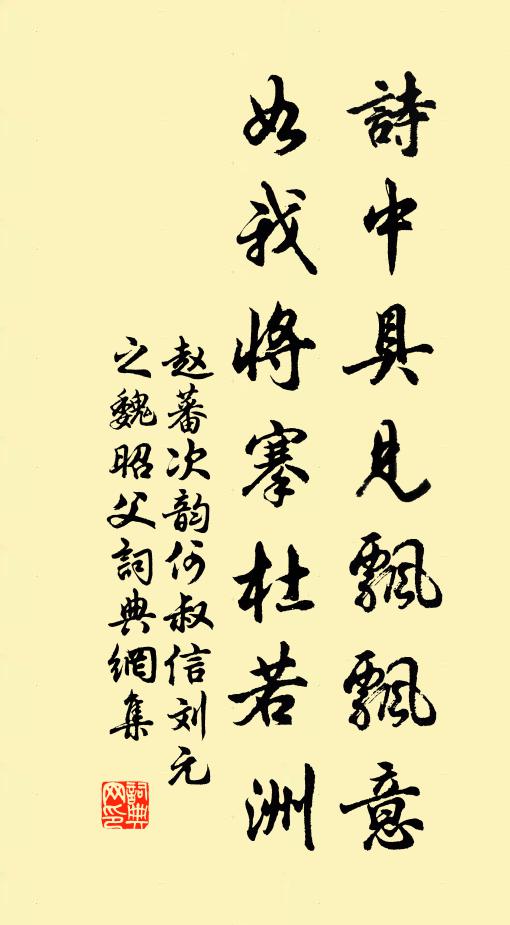 詩中具見飄飄意
如我將搴杜若洲
赵蕃次韵何叔信刘元
之魏昭父詞典網集
詞典
网印